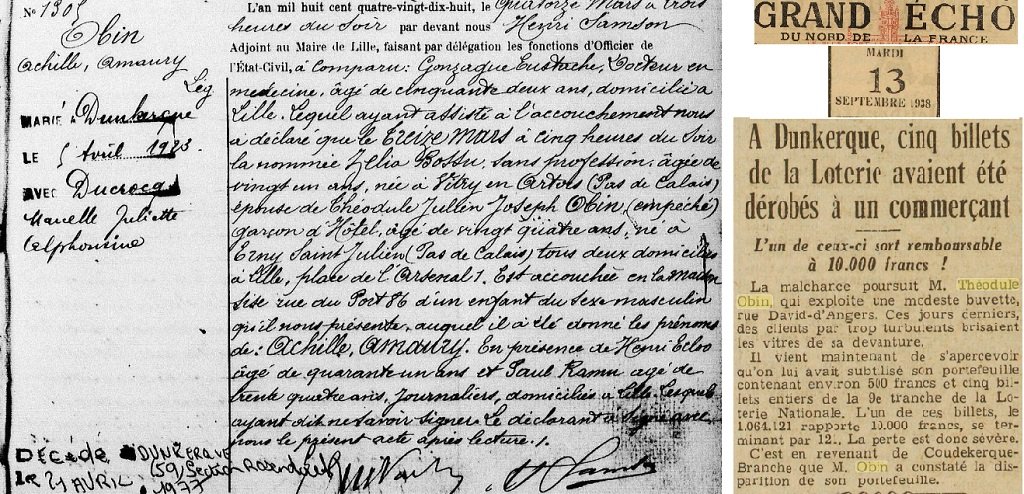 N° 1305
Obin
Achille, Amaury
Lég
MARIÉ à Dunkerque
LE 5 Avril 1923
AVEC Ducrocq
Marcelle Juliette
Alphonsine
L'an mil huit cent quatre-vingt-dix-huit, le Quatorze Mars à trois
heures du Soir par devant nous Henri Samson
Adjoint au Maire de Lille, faisant par délégation les fonctions d'Officier de
l'État-Civil, a comparu: Gonzague Eustache, Docteur en
medecine, âgé de cinquante deux ans, domicilié à
Lille. Lequel ayant assisté à l'accouchement nous
a déclaré que le Treize Mars à cinq heures du Soir
la nommée Zélia Bossu, sans profession, âgée de
vingt un ans, née à Vitry en Artois (Pas de Calais)
épouse de Théodule Jullien Joseph Obin (empêché)
garçon d'Hôtel, âgé de vingt quatre ans, né à
Erny Saint Julien (Pas de Calais) tous deux domiciliés
à Lille, place de l'Arsenal 1. Est accouchée en la maison
sise rue du Port 86 d'un enfant du Sexe masculin
qu'il nous présente, auquel il a été donné les prénoms
de: Achille, Amaury. En présence de Henri Ecloo
âgé de quarante un ans et Paul Ramu âgé de
trente quatre ans, journaliers, domiciliés à Lille. Lesquels
ayant dit ne savoir signer le déclarant a signé avec
nous le présent acte après lecture.
DÉCÉDÉ à DUNKERQUE
(59) Section Rosendaël
LE 21 AVRIL 1977
GRAND ÉCHO
DU NORD DE LA FRANCE
MARDI
13
SEPTEMBRE 1938
A Dunkerque, cinq billets
de la Loterie avaient été
dérobés à un commerçant
L'un de ceux-ci sort remboursable
à 10.000 francs !
La malchance poursuit M. Théodule
Obin, qui exploite une modeste buvette,
rue David-d'Angers. Ces jours derniers,
des clients par trop turbulents brisaient
les vitres de sa devanture.
Il vient maintenant de s'apercevoir
qu'on lui avait subtilisé son portefeuille
contenant environ 500 francs et cinq bil-
lets entiers de la 9e tranche de la Lo-
terie Nationale. L'un de ces billets, le
1.064.121 rapporte 10.000 francs, se ter-
minant par 121. La perte est donc sévère.
C'est en revenant de Coudekerque-
Branche que M. Obin a constaté la dis-
parition de son portefeuille.